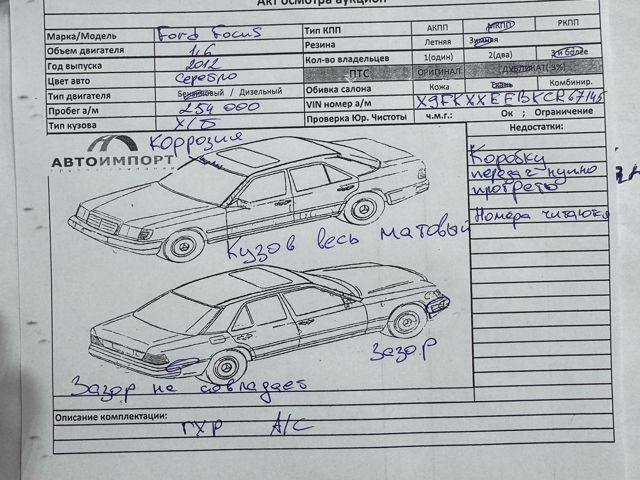 Акт осмотра аукцион
Марка/Модель Ford Focus Тип КПП АКПП МКПП РКПП
Объем двигателя 1,6 Резина Летняя Зимняя
Год выпуска 2012 Кол-во владельцев 1(один) 2(два) 3 и более
Цвет авто Серебро ПТС ОРИГИНАЛ ДУБЛИКАТ(-3%)
Тип двигателя Бензиновый / Дизельный Обивка салона Кожа Ткань Комбинир.
Пробег а/м 254 000 VIN номер а/м X9FKXXEEBKCR67145
Тип кузова Х/Б Проверка Юр. Чистоты ч.м.г.: Ок ; Ограничение
Недостатки:
Коррозия
АВТОИМПОРТ
Коробку
передач нужно
прогреть
Номера читаются
Кузов весь матовый
Зазор
Зазор не совпадает
Описание комплектации:
ГУР A/C